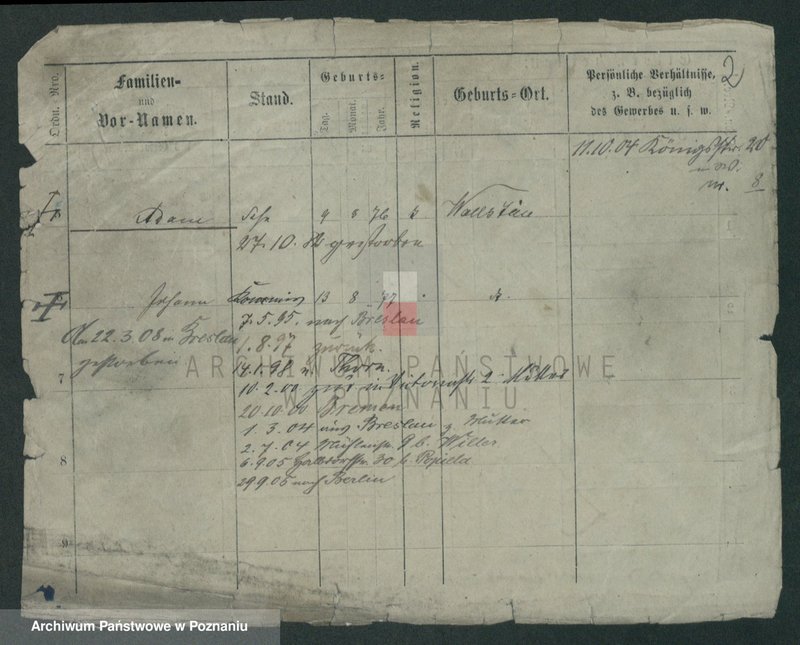 2
Ordn. Nro.
Familien-
und
Vor-Namen.
Stand.
Geburts-
Tag.
Monat.
Jahr.
Religion.
Geburts-Ort.
Persönliche Verhältnisse,
z. B. bezüglich
des Gewerbes u. s. w.
11.10.04 Königsstr. 20
8
Adam
9 8 76
27.10.82 gestorben
Johann
13 8 77
7.5.95. nach Breslau
1.8.97 zurück.
Am 22.3.08 in Breslau
gestorben
14.1.98 n. Thorn.
7
10.2.00 2 Mutter
20.10.00 Bremen
1.3.04 aus Breslau z Mutter
2.7.04 Mühlenstr. 9 b. Willer
8
6.9.05 30 b.
29.9.05 nach Berlin
9
ARCHIWUM PAŃSTWOWE
W POZNANIU
Archiwum Państwowe w Poznaniu